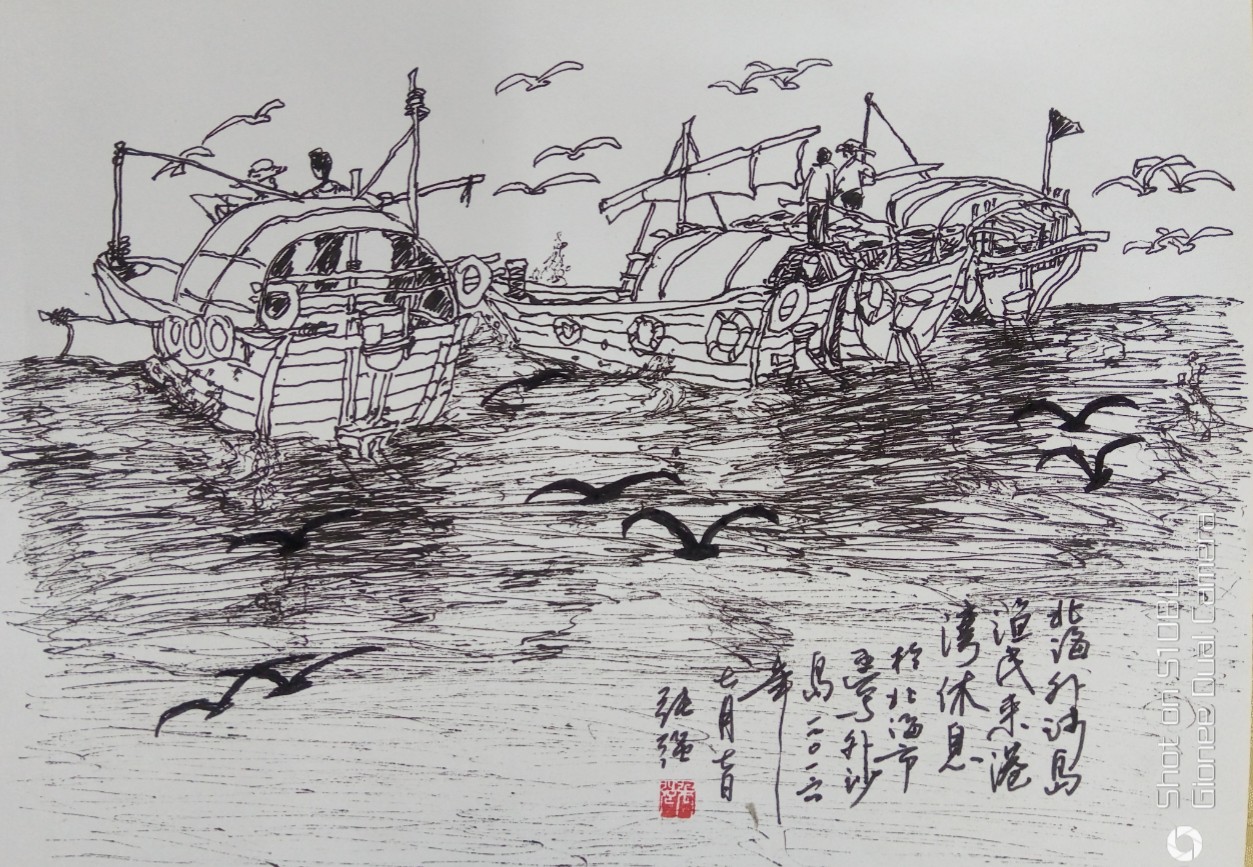 北海外沙岛
渔民来港
湾休息
於北海市
写外沙
岛二〇一六
年
七月七日
张强
Shot on S10BL
Gionee Dual Camera